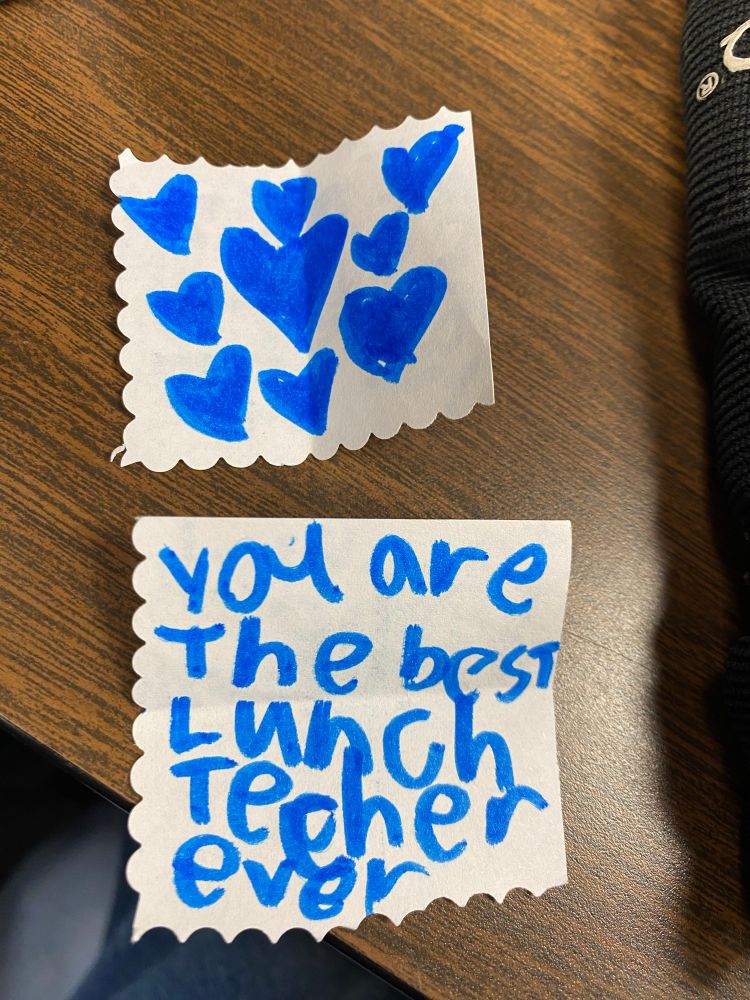 you are
The best
Lunch
Techer
ever
®